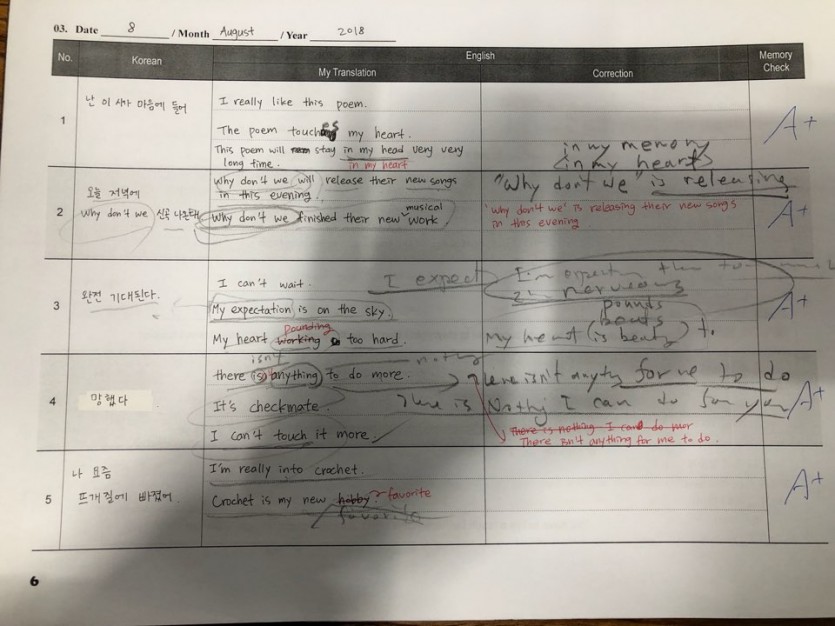 03. Date 8 / Month August / Year 2018
No. Korean English Memory Check
My Translation Correction
1
난 이 시가 마음에 들어
I really like this poem.
The poem touches my heart.
This poem will stay in my head very very
long time. in my heart
in my memory
in my heart
A+
2
오늘 저녁에
Why don't we 신곡 나온대
Why don't we will release their new songs
in this evening.
musical
Why don't we finished their new work
"Why don't we" is releasing
'Why don't we' is releasing their new songs
in this evening
A+
3
완전 기대된다.
I can't wait.
I expect
My expectation is on the sky.
pounding
My heart working so too hard.
I'm
nervous
pounds
beats
My heart (is beat)
A+
4
망했다
isn't
there is anything to do more.
It's checkmate.
I can't touch it more.
There isn't anyth for me to do
There is Nothy I can do for you
There is nothing I can do mor
There isn't anything for me to do.
A+
5
나 요즘
뜨개질에 빠졌어.
I'm really into crochet.
Crochet is my new hobby favorite
favorite
A+
6